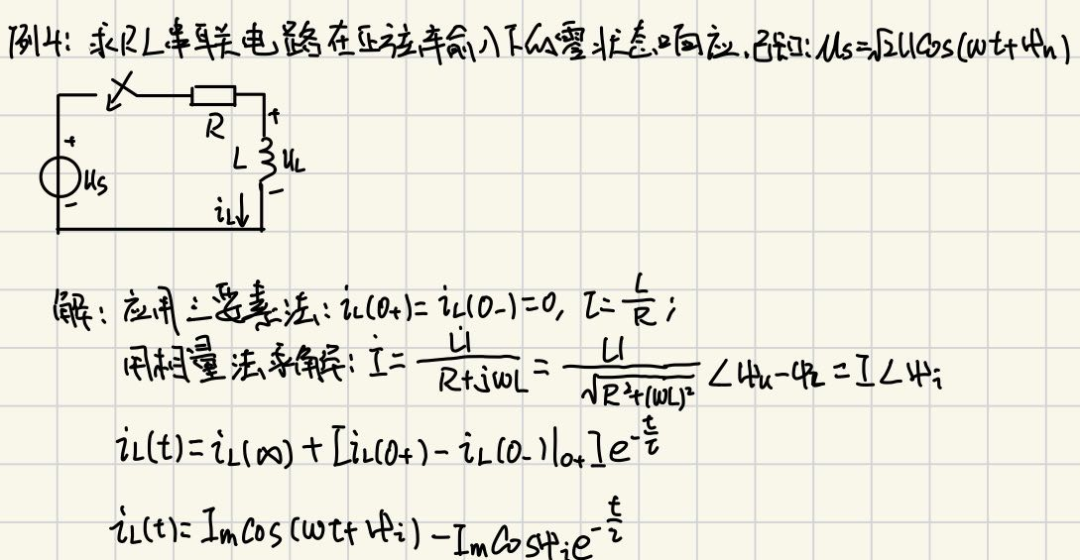 例4: 求RL串联电路在正弦率输入下的零状态响应.已知: us=√2Ucos(ωt+ψu)
+
R
+
L
uL
us
-
-
iL↓
解: 应用三要素法: iL(0+)=iL(0-)=0, τ=L/R;
用相量法求解: İ=U̇/(R+jωL)=U/√(R²+(ωL)²) ∠ψu-φz=I∠ψi
iL(t)=iL(∞)+[iL(0+)-iL(0-)|0+]e^(-t/τ)
iL(t)=Imcos(ωt+ψi)-Imcosψie^(-t/τ)